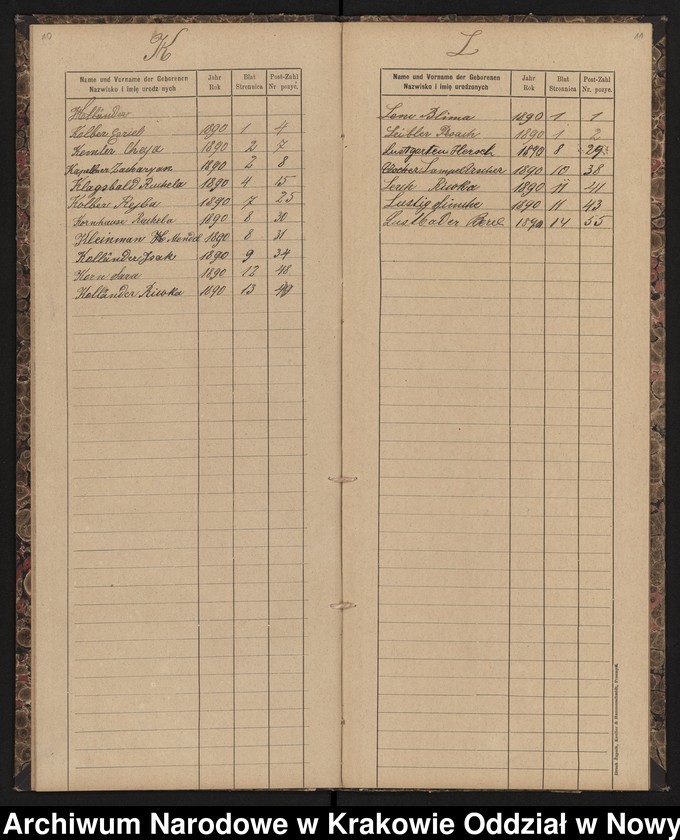 10
K
Name und Vorname der Geborenen Jahr Blat Post-Zahl
Nazwisko i imię urodzonych Rok Stronnica Nr. pozyc.
Holländer
Kolber Ezriel 1890 1 4
Kemler Chaja 1890 2 7
Kapellner Zacharyasz 1890 2 8
Klagsbald Ruchela 1890 4 15
Kolber Rejba 1890 7 25
Kornhauser Ruchela 1890 8 30
Kleinman Mendel 1890 8 31
Kolländer Izak 1890 9 34
Korn Sara 1890 12 48
Kolländer Riwka 1890 13 49
11
L
Name und Vorname der Geborenen Jahr Blat Post-Zahl
Nazwisko i imię urodzonych Rok Stronnica Nr. pozyc.
Lem Blima 1890 1 1
Leibler 1890 1 2
Lustgarten Hersch 1890 8 29
1890 10 38
Riwka 1890 11 41
Lustig 1890 11 43
Lustbader Berl 1890 14 55
Archiwum Narodowe w Krakowie Oddział w Nowy